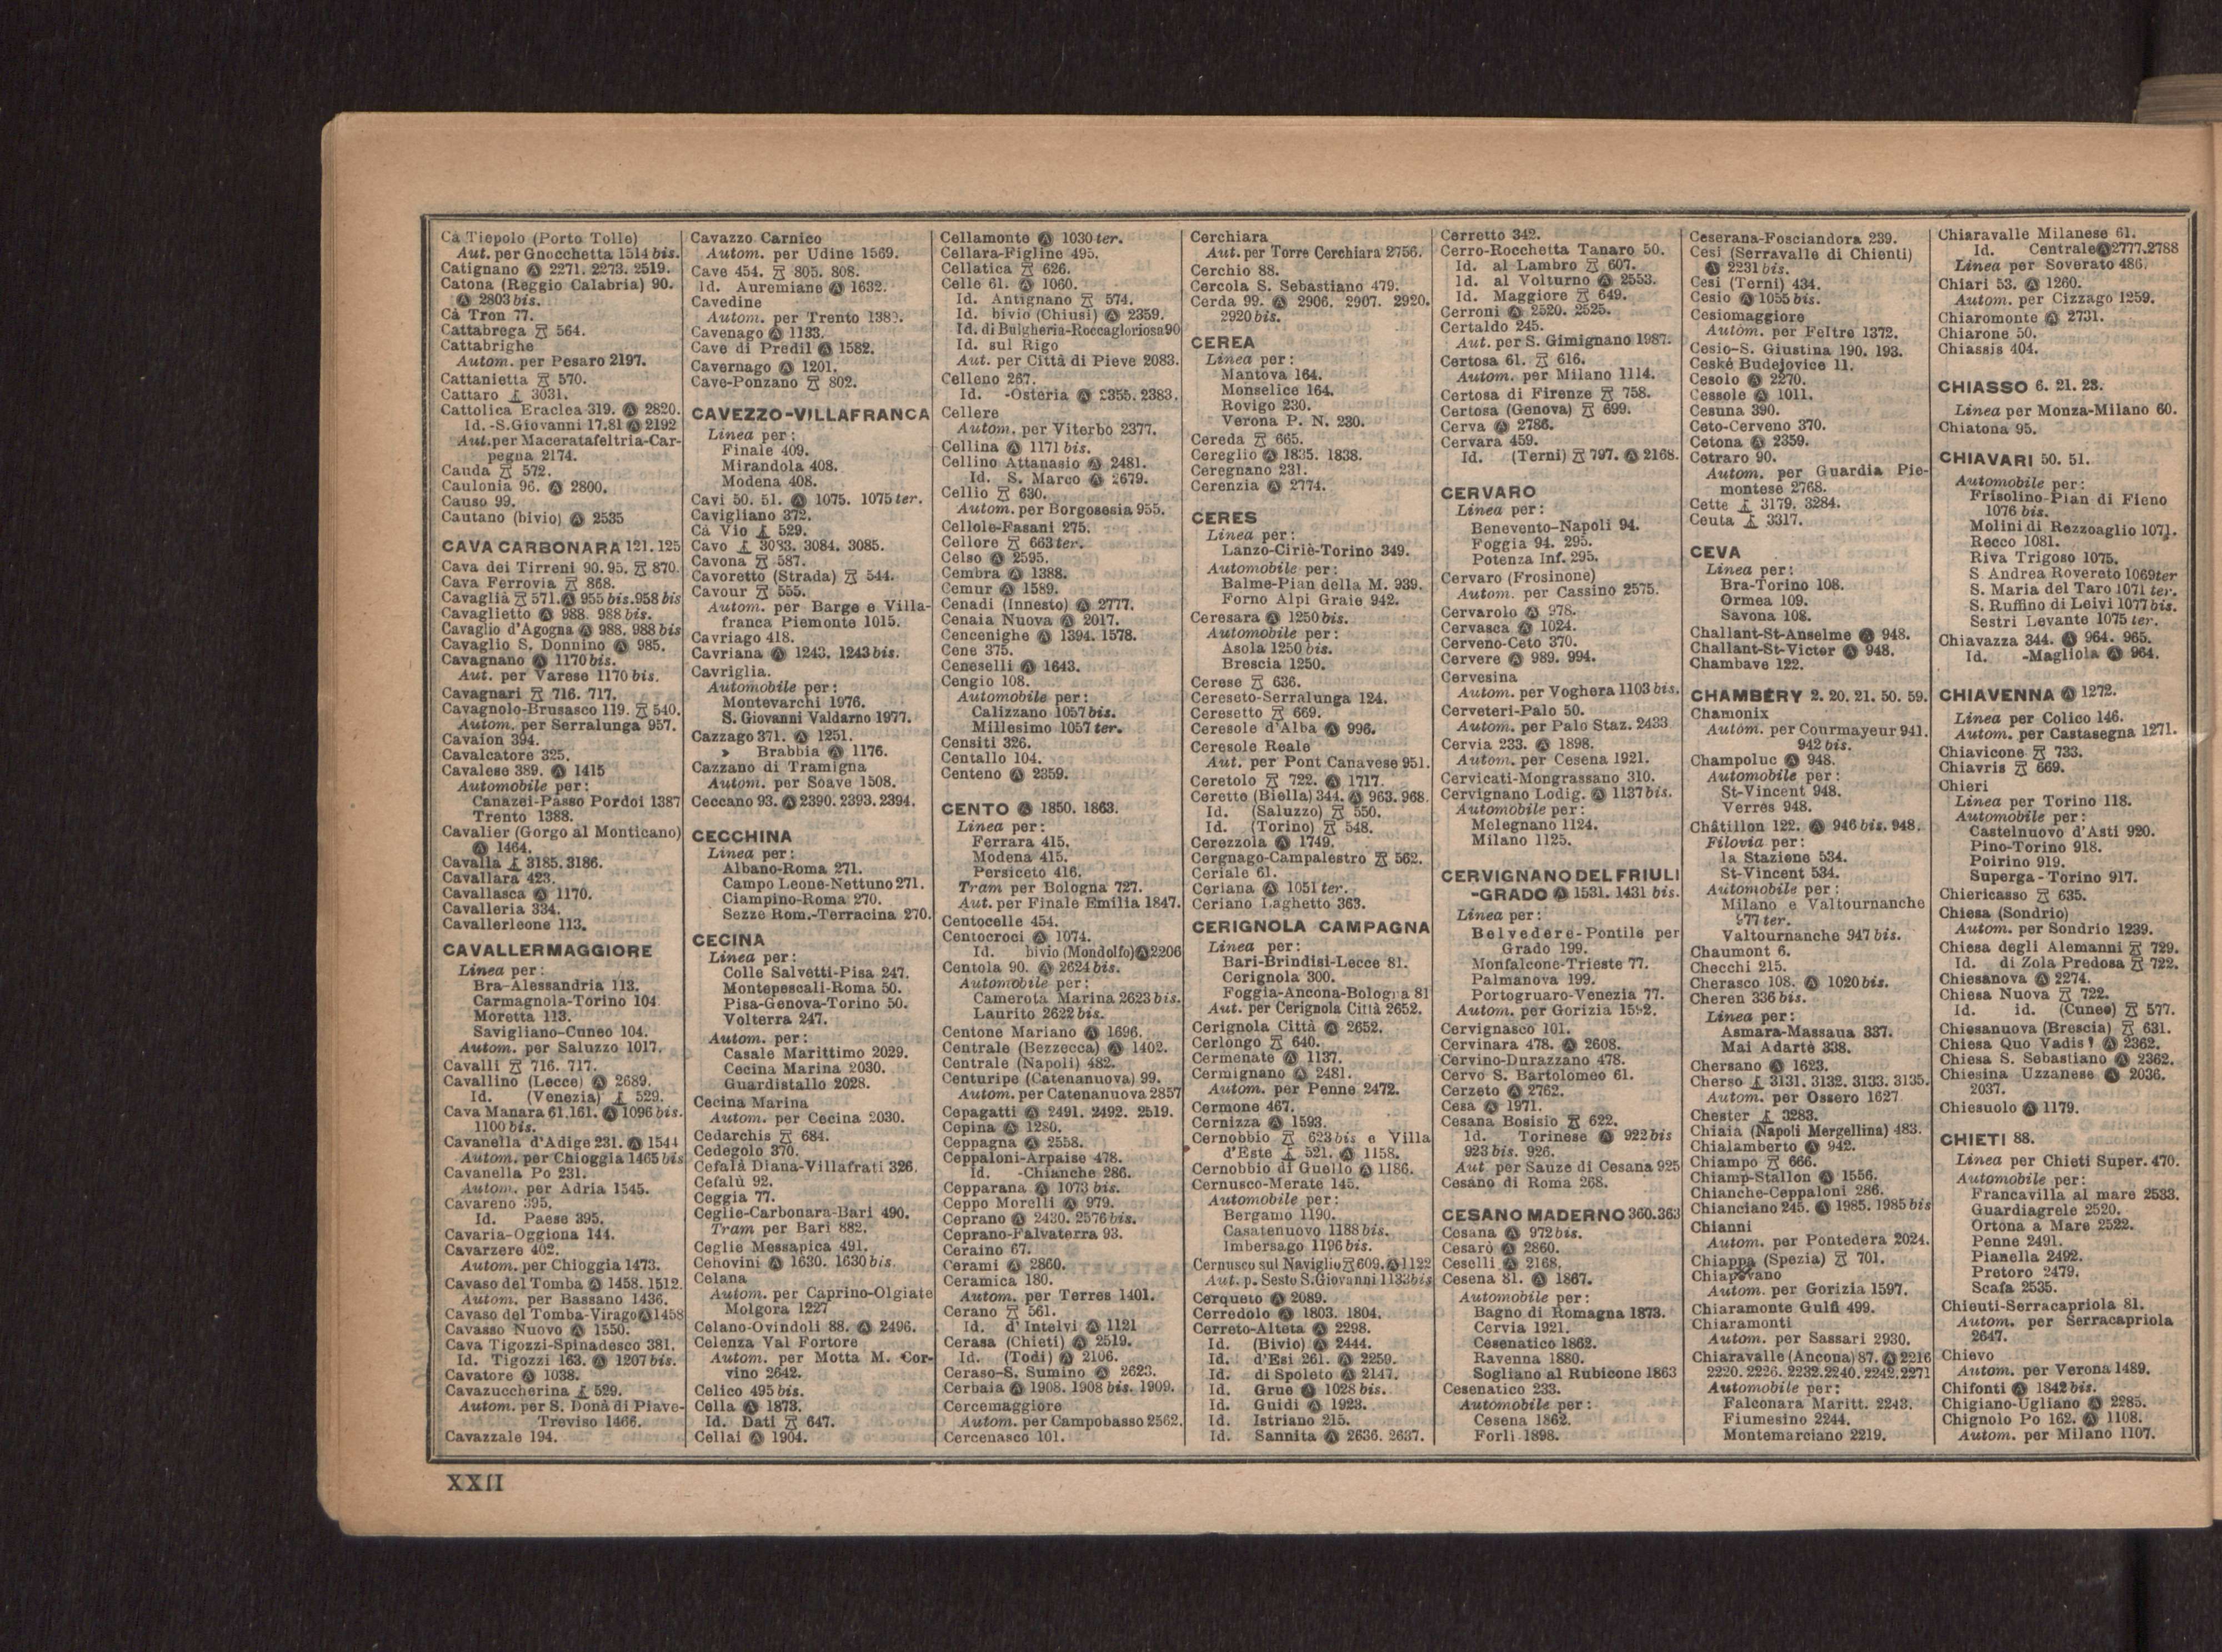 Cà Tiepolo (Porto Tolle)
Aut. per Gnocchetta 1514 bis.
Catignano Ⓐ 2271. 2273. 2519.
Catona (Reggio Calabria) 90.
Ⓐ 2803 bis.
Cà Tron 77.
Cattabrega 564.
Cattabrighe
Autom. per Pesaro 2197.
Cattanietta 570.
Cattaro 3031.
Cattolica Eraclea 319. Ⓐ 2820.
Id. -S. Giovanni 17.81 Ⓐ 2192
Aut. per Maceratafeltria-Car-
pegna 2174.
Cauda 572.
Caulonia 96. Ⓐ 2800.
Causo 99.
Cautano (bivio) Ⓐ 2535
CAVA CARBONARA 121. 125
Cava dei Tirreni 90. 95. 870.
Cava Ferrovia 868.
Cavaglià 571. Ⓐ 955 bis. 958 bis
Cavaglietto Ⓐ 988. 988 bis.
Cavaglio d'Agogna Ⓐ 988. 988 bis
Cavaglio S. Donnino Ⓐ 985.
Cavagnano Ⓐ 1170 bis.
Aut. per Varese 1170 bis.
Cavagnari 716. 717.
Cavagnolo-Brusasco 119. 540.
Autom. per Serralunga 957.
Cavaion 394.
Cavalcatore 325.
Cavalese 389. Ⓐ 1415
Automobile per:
Canazei-Passo Pordoi 1387
Trento 1388.
Cavalier (Gorgo al Monticano)
Ⓐ 1464.
Cavalla 3185. 3186.
Cavallara 423.
Cavallasca Ⓐ 1170.
Cavalleria 334.
Cavallerleone 113.
CAVALLERMAGGIORE
Linea per:
Bra-Alessandria 113.
Carmagnola-Torino 104.
Moretta 113.
Savigliano-Cuneo 104.
Autom. per Saluzzo 1017.
Cavalli 716. 717.
Cavallino (Lecce) Ⓐ 2689.
Id. (Venezia) 529.
Cava Manara 61.161. Ⓐ 1096 bis.
1100 bis.
Cavanella d'Adige 231. Ⓐ 1544
Autom. per Chioggia 1465 bis
Cavanella Po 231.
Autom. per Adria 1545.
Cavareno 395.
Id. Paese 395.
Cavaria-Oggiona 144.
Cavarzere 402.
Autom. per Chioggia 1473.
Cavaso del Tomba Ⓐ 1458. 1512.
Autom. per Bassano 1436.
Cavaso del Tomba-Virago Ⓐ 1458
Cavasso Nuovo Ⓐ 1550.
Cava Tigozzi-Spinadesco 381.
Id. Tigozzi 163. Ⓐ 1207 bis.
Cavatore Ⓐ 1038.
Cavazuccherina 529.
Autom. per S. Donà di Piave-
Treviso 1466.
Cavazzale 194.
Cavazzo Carnico
Autom. per Udine 1569.
Cave 454. 805. 808.
Id. Auremiane Ⓐ 1632.
Cavedine
Autom. per Trento
Cavenago Ⓐ 1133.
Cave di Predil Ⓐ 1582.
Cavernago Ⓐ 1201.
Cave-Ponzano 802.
CAVEZZO-VILLAFRANCA
Linea per:
Finale 409.
Mirandola 408.
Modena 408.
Cavi 50. 51. Ⓐ 1075. 1075 ter.
Cavigliano 372.
Cà Vio 529.
Cavo 3083. 3084. 3085.
Cavona 587.
Cavoretto (Strada) 544.
Cavour 555.
Autom. per Barge e Villa-
franca Piemonte 1015.
Cavriago 418.
Cavriana Ⓐ 1243. 1243 bis.
Cavriglia.
Automobile per:
Montevarchi 1976.
S. Giovanni Valdarno 1977.
Cazzago 371. Ⓐ 1251.
» Brabbia Ⓐ 1176.
Cazzano di Tramigna
Autom. per Soave 1508.
Ceccano 93. Ⓐ 2390. 2393. 2394.
CECCHINA
Linea per:
Albano-Roma 271.
Campo Leone-Nettuno 271.
Ciampino-Roma 270.
Sezze Rom.-Terracina 270.
CECINA
Linea per:
Colle Salvetti-Pisa 247.
Montepescali-Roma 50.
Pisa-Genova-Torino 50.
Volterra 247.
Autom. per:
Casale Marittimo 2029.
Cecina Marina 2030.
Guardistallo 2028.
Cecina Marina
Autom. per Cecina 2030.
Cedarchis 684.
Cedegolo 370.
Cefalà Diana-Villafrati 326.
Cefalù 92.
Ceggia 77.
Ceglie-Carbonara-Bari 490.
Tram per Bari 882.
Ceglie Messapica 491.
Cehovini Ⓐ 1630. 1630 bis.
Celana
Autom. per Caprino-Olgiate
Molgora 1227
Celano-Ovindoli 88. Ⓐ 2496.
Celenza Val Fortore
Autom. per Motta M. Cor-
vino 2642.
Celico 495 bis.
Cella Ⓐ 1873.
Id. Dati 647.
Cellai Ⓐ 1904.
Cellamonte Ⓐ 1030 ter.
Cellara-Figline 495.
Cellatica 626.
Celle 61. Ⓐ 1060.
Id. Antignano 574.
Id. bivio (Chiusi) Ⓐ 2359.
Id. di Bulgheria-Roccagloriosa 90
Id. sul Rigo
Aut. per Città di Pieve 2083.
Celleno 267.
Id. -Osteria Ⓐ 2355. 2383.
Cellere
Autom. per Viterbo 2377.
Cellina Ⓐ 1171 bis.
Cellino Attanasio Ⓐ 2481.
Id. S. Marco Ⓐ 2679.
Cellio 630.
Autom. per Borgosesia 955.
Cellole-Fasani 275.
Cellore 663 ter.
Celso Ⓐ 2595.
Cembra Ⓐ 1388.
Cemur Ⓐ 1589.
Cenadi (Innesto) Ⓐ 2777.
Cenaia Nuova Ⓐ 2017.
Cencenighe Ⓐ 1394. 1578.
Cene 375.
Ceneselli Ⓐ 1643.
Cengio 108.
Automobile per:
Calizzano 1057 bis.
Millesimo 1057 ter.
Censiti 326.
Centallo 104.
Centeno Ⓐ 2359.
CENTO Ⓐ 1850. 1863.
Linea per:
Ferrara 415.
Modena 415.
Persiceto 416.
Tram per Bologna 727.
Aut. per Finale Emilia 1847.
Centocelle 454.
Centocroci Ⓐ 1074.
Id. bivio (Mondolfo) Ⓐ 2206
Centola 90. Ⓐ 2624 bis.
Automobile per:
Camerota Marina 2623 bis.
Laurito 2622 bis.
Centone Mariano Ⓐ 1696.
Centrale (Bezzecca) Ⓐ 1402.
Centrale (Napoli) 482.
Centuripe (Catenanuova) 99.
Autom. per Catenanuova 2857
Cepagatti Ⓐ 2491. 2492. 2519.
Cepina Ⓐ 1280.
Ceppagna Ⓐ 2558.
Ceppaloni-Arpaise 478.
Id. -Chianche 286.
Cepparana Ⓐ 1073 bis.
Ceppo Morelli Ⓐ 979.
Ceprano Ⓐ 2430. 2576 bis.
Ceprano-Falvaterra 93.
Ceraino 67.
Cerami Ⓐ 2860.
Ceramica 180.
Autom. per Terres 1401.
Cerano 561.
Id. d'Intelvi Ⓐ 1121
Cerasa (Chieti) Ⓐ 2519.
Id. (Todi) Ⓐ 2106.
Ceraso-S. Sumino Ⓐ 2623.
Cerbaia Ⓐ 1908. 1908 bis. 1909.
Cercemaggiore
Autom. per Campobasso 2562.
Cercenasco 101.
Cerchiara
Aut. per Torre Cerchiara 2756.
Cerchio 88.
Cercola S. Sebastiano 479.
Cerda 99. Ⓐ 2906. 2907. 2920.
2920 bis.
CEREA
Linea per:
Mantova 164.
Monselice 164.
Rovigo 230.
Verona P. N. 230.
Cereda 665.
Cereglio Ⓐ 1835. 1838.
Ceregnano 231.
Cerenzia Ⓐ 2774.
CERES
Linea per:
Lanzo-Ciriè-Torino 349.
Automobile per:
Balme-Pian della M. 939.
Forno Alpi Graie 942.
Ceresara Ⓐ 1250 bis.
Automobile per:
Asola 1250 bis.
Brescia 1250.
Cerese 636.
Cereseto-Serralunga 124.
Ceresetto 669.
Ceresole d'Alba Ⓐ 996.
Ceresole Reale
Aut. per Pont Canavese 951.
Ceretolo 722. Ⓐ 1717.
Ceretto (Biella) 344. Ⓐ 963. 968.
Id. (Saluzzo) 550.
Id. (Torino) 548.
Cerezzola Ⓐ 1749.
Cergnago-Campalestro 562.
Ceriale 61.
Ceriana Ⓐ 1051 ter.
Ceriano Laghetto 363.
CERIGNOLA CAMPAGNA
Linea per:
Bari-Brindisi-Lecce 81.
Cerignola 300.
Foggia-Ancona-Bologna 81
Aut. per Cerignola Città 2652.
Cerignola Città Ⓐ 2652.
Cerlongo 640.
Cermenate Ⓐ 1137.
Cermignano Ⓐ 2481.
Autom. per Penne 2472.
Cermone 467.
Cernizza Ⓐ 1593.
Cernobbio 623 bis e Villa
d'Este 521. Ⓐ 1158.
Cernobbio di Guello Ⓐ 1186.
Cernusco-Merate 145.
Automobile per:
Bergamo 1190.
Casatenuovo 1188 bis.
Imbersago 1196 bis.
Cernusco sul Naviglio 609. Ⓐ 1122
Aut. p. Sesto S. Giovanni 1133 bis
Cerqueto Ⓐ 2089.
Cerredolo Ⓐ 1803. 1804.
Cerreto-Alteta Ⓐ 2298.
Id. (Bivio) Ⓐ 2444.
Id. d'Esi 261. Ⓐ 2259.
Id. di Spoleto Ⓐ 2147.
Id. Grue Ⓐ 1028 bis.
Id. Guidi Ⓐ 1923.
Id. Istriano 215.
Id. Sannita Ⓐ 2636. 2637.
Cerretto 342.
Cerro-Rocchetta Tanaro 50.
Id. al Lambro 607.
Id. al Volturno Ⓐ 2553.
Id. Maggiore 649.
Cerroni Ⓐ 2520. 2525.
Certaldo 245.
Aut. per S. Gimignano 1987.
Certosa 61. 616.
Autom. per Milano 1114.
Certosa di Firenze 758.
Certosa (Genova) 699.
Cerva Ⓐ 2786.
Cervara 459.
Id. (Terni) 797. Ⓐ 2168.
CERVARO
Linea per:
Benevento-Napoli 94.
Foggia 94. 295.
Potenza Inf. 295.
Cervaro (Frosinone)
Autom. per Cassino 2575.
Cervarolo Ⓐ 978.
Cervasca Ⓐ 1024.
Cerveno-Ceto 370.
Cervere Ⓐ 989. 994.
Cervesina
Autom. per Voghera 1103 bis.
Cerveteri-Palo 50.
Autom. per Palo Staz. 2433
Cervia 233. Ⓐ 1898.
Autom. per Cesena 1921.
Cervicati-Mongrassano 310.
Cervignano Lodig. Ⓐ 1137 bis.
Automobile per:
Melegnano 1124.
Milano 1125.
CERVIGNANO DEL FRIULI
-GRADO Ⓐ 1531. 1431 bis.
Linea per:
Belvedere-Pontile per
Grado 199.
Monfalcone-Trieste 77.
Palmanova 199.
Portogruaro-Venezia 77.
Autom. per Gorizia 1592.
Cervignasco 101.
Cervinara 478. Ⓐ 2608.
Cervino-Durazzano 478.
Cervo S. Bartolomeo 61.
Cerzeto Ⓐ 2762.
Cesa Ⓐ 1971.
Cesana Bosisio 622.
Id. Torinese Ⓐ 922 bis
923 bis. 926.
Aut. per Sauze di Cesana 925
Cesano di Roma 268.
CESANO MADERNO 360.363
Cesana Ⓐ 972 bis.
Cesarò Ⓐ 2860.
Ceselli Ⓐ 2168.
Cesena 81. Ⓐ 1867.
Automobile per:
Bagno di Romagna 1873.
Cervia 1921.
Cesenatico 1862.
Ravenna 1880.
Sogliano al Rubicone 1863
Cesenatico 233.
Automobile per:
Cesena 1862.
Forlì 1898.
Ceserana-Fosciandora 239.
Cesi (Serravalle di Chienti)
Ⓐ 2231 bis.
Cesi (Terni) 434.
Cesio Ⓐ 1055 bis.
Cesiomaggiore
Autom. per Feltre 1372.
Cesio-S. Giustina 190. 193.
Ceské Budejovice 11.
Cesolo Ⓐ 2270.
Cessole Ⓐ 1011.
Cesuna 390.
Ceto-Cerveno 370.
Cetona Ⓐ 2359.
Cetraro 90.
Autom. per Guardia Pie-
montese 2768.
Cette 3179. 3284.
Ceuta 3317.
CEVA
Linea per:
Bra-Torino 108.
Ormea 109.
Savona 108.
Challant-St-Anselme Ⓐ 948.
Challant-St-Victor Ⓐ 948.
Chambave 122.
CHAMBÉRY 2. 20. 21. 50. 59.
Chamonix
Autom. per Courmayeur 941.
942 bis.
Champoluc Ⓐ 948.
Automobile per:
St-Vincent 948.
Verrès 948.
Châtillon 122. Ⓐ 946 bis. 948.
Filovia per:
la Stazione 534.
St-Vincent 534.
Automobile per:
Milano e Valtournanche
877 ter.
Valtournanche 947 bis.
Chaumont 6.
Checchi 215.
Cherasco 108. Ⓐ 1020 bis.
Cheren 336 bis.
Linea per:
Asmara-Massaua 337.
Mai Adartè 338.
Chersano Ⓐ 1623.
Cherso 3131. 3132. 3133. 3135.
Autom. per Ossero 1627
Chester 3283.
Chiaia (Napoli Mergellina) 483.
Chialamberto Ⓐ 942.
Chiampo 666.
Chiamp-Stallon Ⓐ 1556.
Chianche-Ceppaloni 286.
Chianciano 245. Ⓐ 1985. 1985 bis
Chianni
Autom. per Pontedera 2024.
Chiappa (Spezia) 701.
Chiapovano
Autom. per Gorizia 1597.
Chiaramonte Gulfi 499.
Chiaramonti
Autom. per Sassari 2930.
Chiaravalle (Ancona) 87. Ⓐ 2216
2220. 2226. 2232. 2240. 2242. 2271
Automobile per:
Falconara Maritt. 2243.
Fiumesino 2244.
Montemarciano 2219.
Chiaravalle Milanese 61.
Id. Centrale Ⓐ 2777. 2788
Linea per Soverato 486.
Chiari 53. Ⓐ 1260.
Autom. per Cizzago 1259.
Chiaromonte Ⓐ 2731.
Chiarone 50.
Chiassis 404.
CHIASSO 6. 21. 23.
Linea per Monza-Milano 60.
Chiatona 95.
CHIAVARI 50. 51.
Automobile per:
Frisolino-Pian di Fieno
1076 bis.
Molini di Rezzoaglio 1071.
Recco 1081.
Riva Trigoso 1075.
S Andrea Rovereto 1069 ter
S. Maria del Taro 1071 ter.
S. Ruffino di Leivi 1077 bis.
Sestri Levante 1075 ter.
Chiavazza 344. Ⓐ 964. 965.
Id. -Magliola Ⓐ 964.
CHIAVENNA Ⓐ 1272.
Linea per Colico 146.
Autom. per Castasegna 1271.
Chiavicone 733.
Chiavris 669.
Chieri
Linea per Torino 118.
Automobile per:
Castelnuovo d'Asti 920.
Pino-Torino 918.
Poirino 919.
Superga-Torino 917.
Chiericasso 635.
Chiesa (Sondrio)
Autom. per Sondrio 1239.
Chiesa degli Alemanni 729.
Id. di Zola Predosa 722.
Chiesanova Ⓐ 2274.
Chiesa Nuova 722.
Id. id. (Cuneo) 577.
Chiesanuova (Brescia) 631.
Chiesa Quo Vadis? Ⓐ 2362.
Chiesa S. Sebastiano Ⓐ 2362.
Chiesina Uzzanese Ⓐ 2036.
2037.
Chiesuolo Ⓐ 1179.
CHIETI 88.
Linea per Chieti Super. 470.
Automobile per:
Francavilla al mare 2533.
Guardiagrele 2520.
Ortona a Mare 2522.
Penne 2491.
Pianella 2492.
Pretoro 2479.
Scafa 2535.
Chieuti-Serracapriola 81.
Autom. per Serracapriola
2647.
Chievo
Autom. per Verona 1489.
Chifonti Ⓐ 1842 bis.
Chigiano-Ugliano Ⓐ 2285.
Chignolo Po 162. Ⓐ 1108.
Autom. per Milano 1107.
XXII